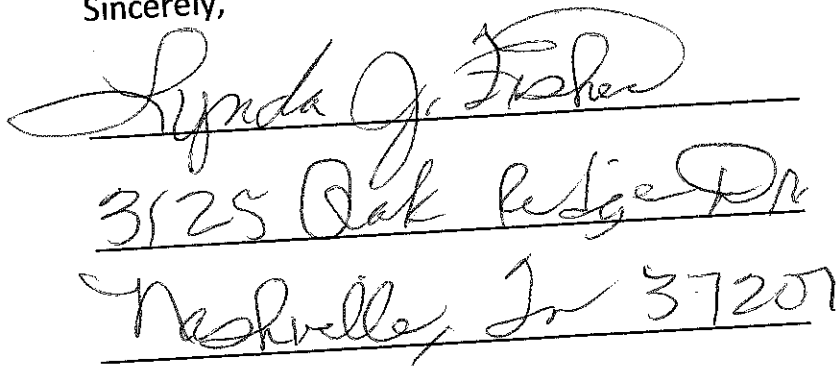 Sincerely,
Lynda J. Fisher
3125 Oak Ridge Dr
Nashville, Tn 37207